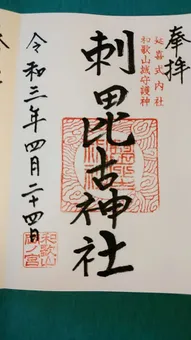 奉拝
延喜式内社
和歌山城守護神
刺田比古神社
令和三年四月二十四日
和歌山